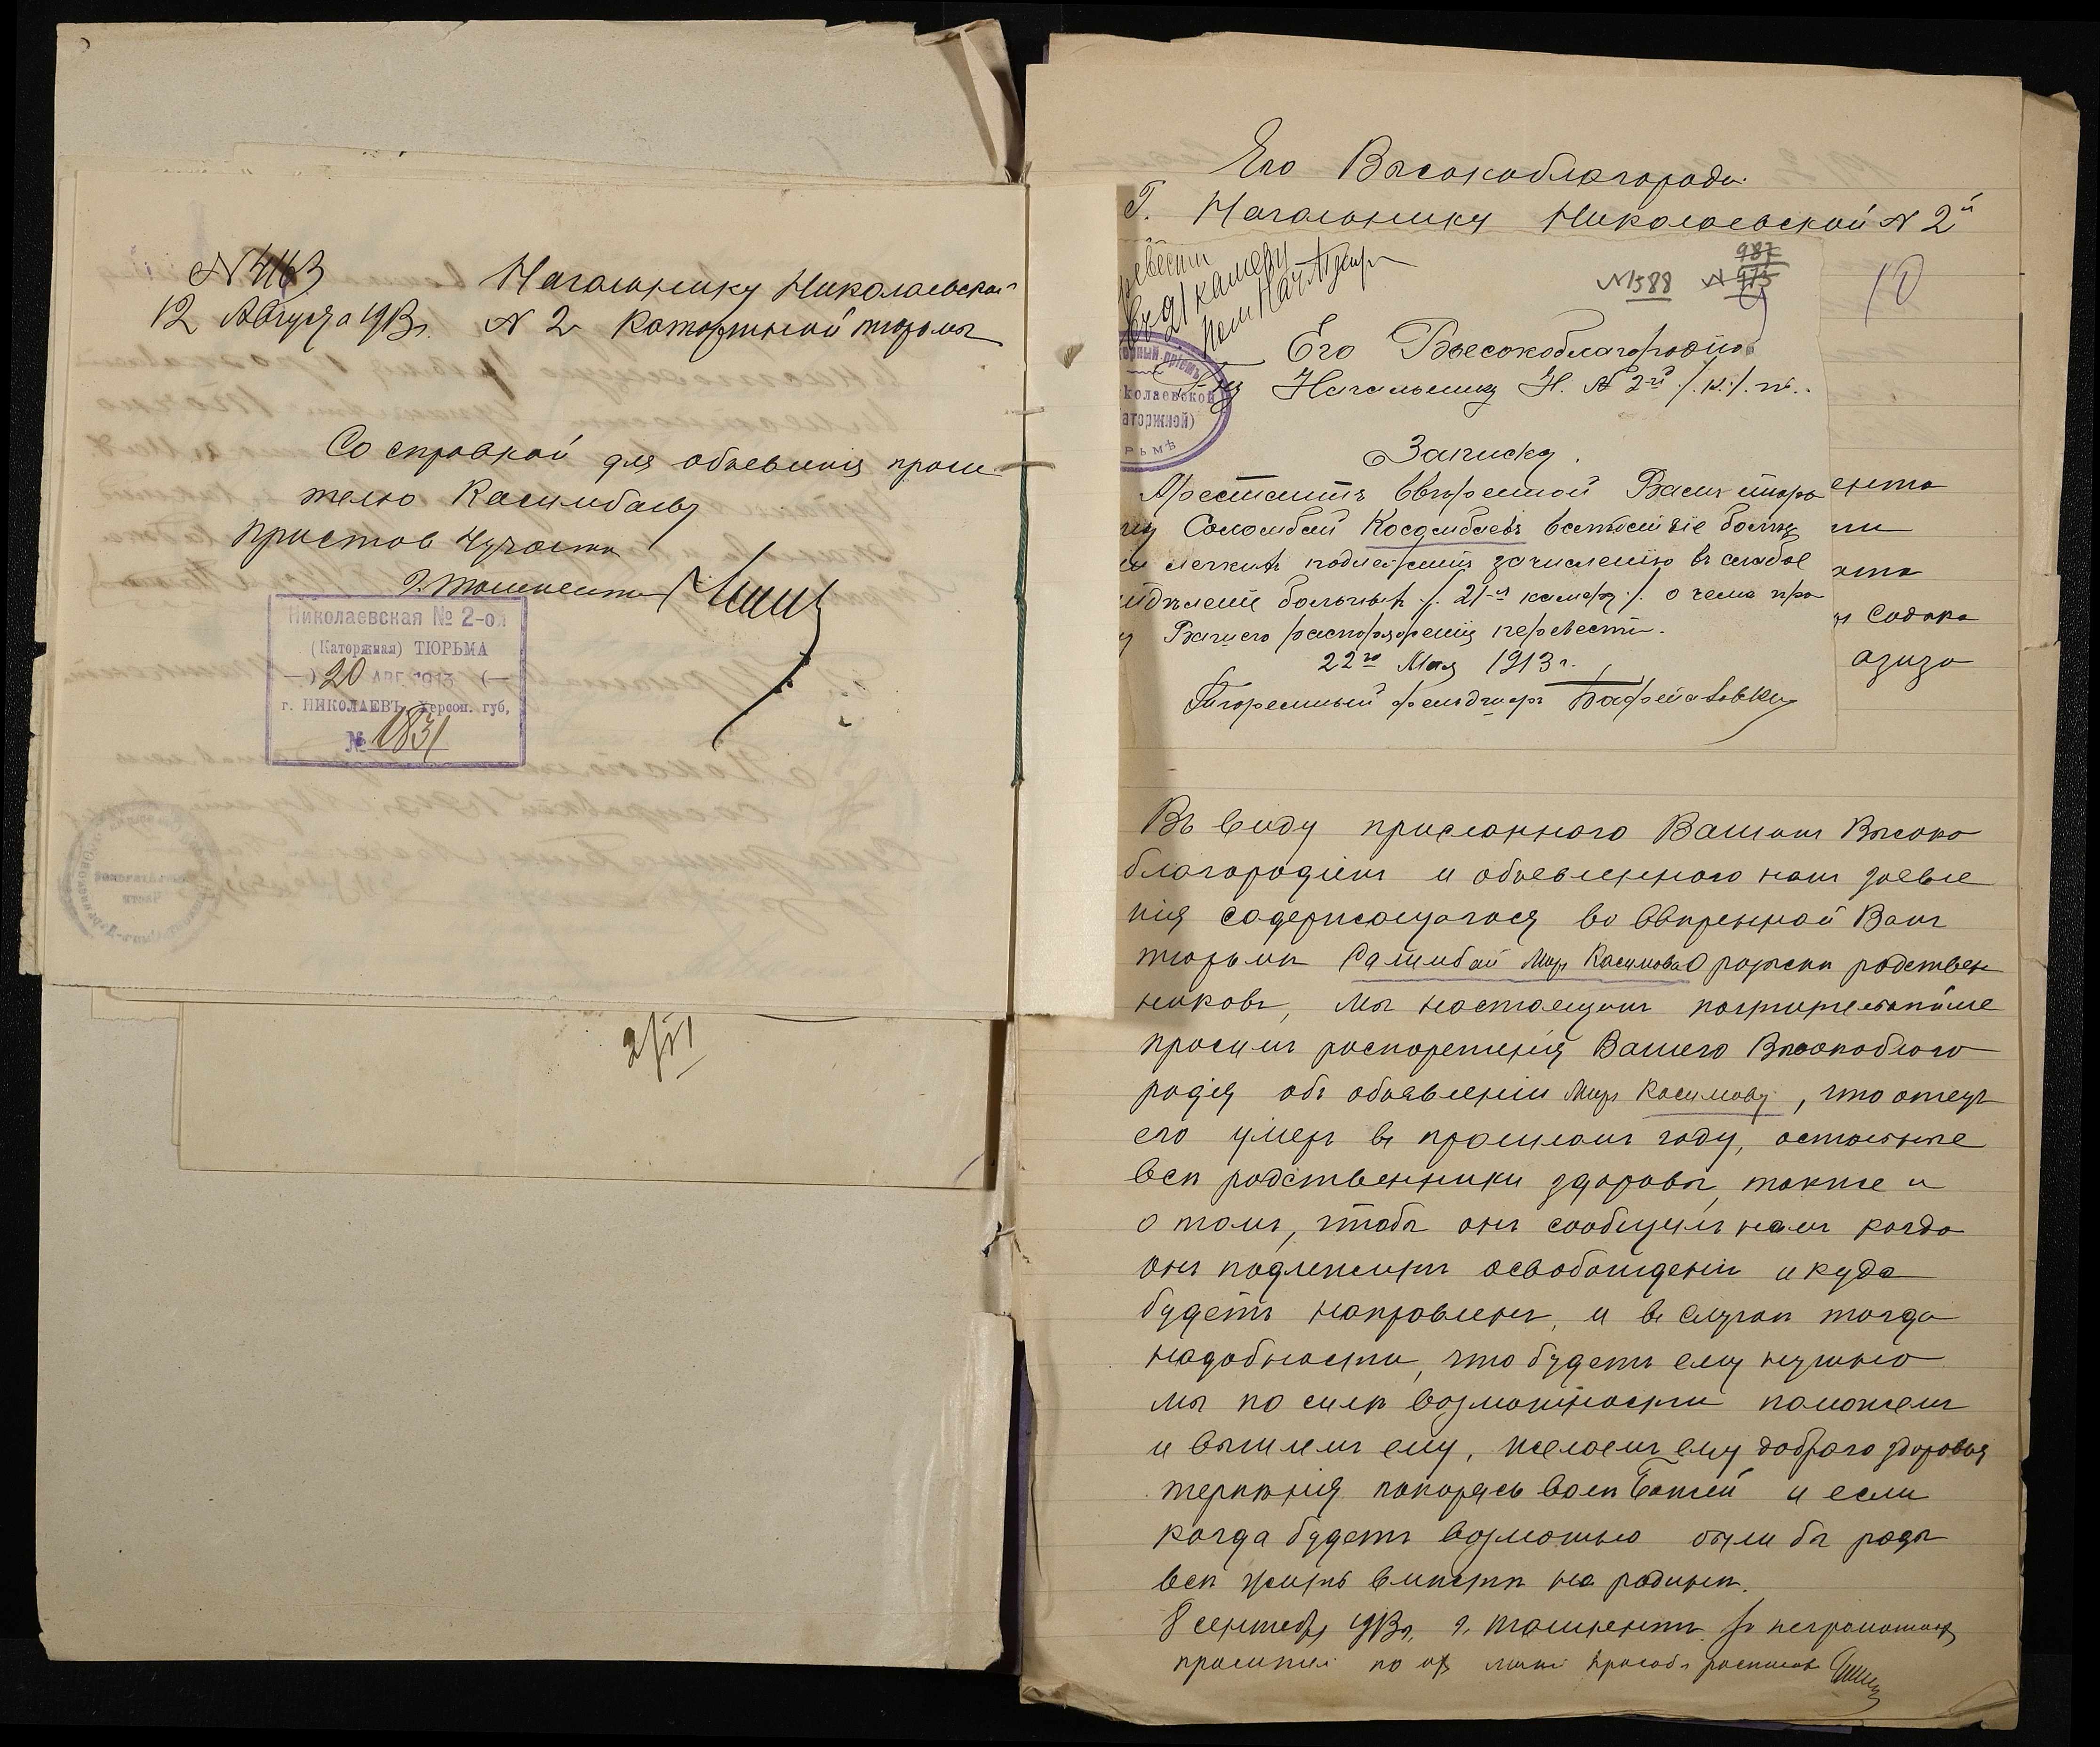 12 Августа 1913 г.
Начальнику Николаевской
№ 2 Каторжной тюрьмы
Со справкой для объевленія проси
телю Касимбаеву
Пристав 4 участка
г. Ташкента
Николаевская № 2-ой
(Каторжная) ТЮРЬМА
20 АВГ. 1913
г. НИКОЛАЕВЪ, Херсон. губ,
№ 1831
Его Высокоблагороди
Г. Начальнику Николаевской № 2й
въ 21 камеру
№ 1588 № 973
987
10
Его Высокоблагородію
Начальнику Н. № 2й /.к./. т.
колаевской
аторжной)
РЬМѢ
Записка
Арестантъ ввѣренной Вамъ тюрь
Касдимбаевъ вслѣдствіе болѣз
легкихъ подлежитъ зачисленію въ слабое
больныхъ /. 21-я камера /. о чемъ про
Вашего распоряженія перевести.
22го Мая 1913 г.
Тюремный фельдшеръ
Садыка
азиза
Въ виду присланного Вашим Высоко
благородіем и объевленного нам заевле
нія содержащагося во ввѣренной Вам
тюрьмѣ Салимбай Мир Касимова О розыскѣ родствен
никовъ, мы настоящим почтительнѣйше
просим распорежения Вашего Высокоблаго
родія объ объявленіи Мир Касимову, что отецъ
его умеръ въ прошлом году, остальные
всѣ родственники здоровы, также и
о том, чтобы онъ сообщилъ нам когда
он подлежитъ освобождению и куда
будетъ направленъ, и въ случаѣ тогда
надобности, что будетъ ему нужно
мы по силѣ возможности поможемъ
и вышлемъ ему, желаемъ ему доброго здоровья
терпѣнія покорясь волѣ Божей и если
когда будетъ возможно были бы рады
всѣ жить вмѣстѣ на родинѣ.
8 сентебря 1913 г. г. Ташкентъ. За неграмотных
просителей по их личной просьбѣ росписался